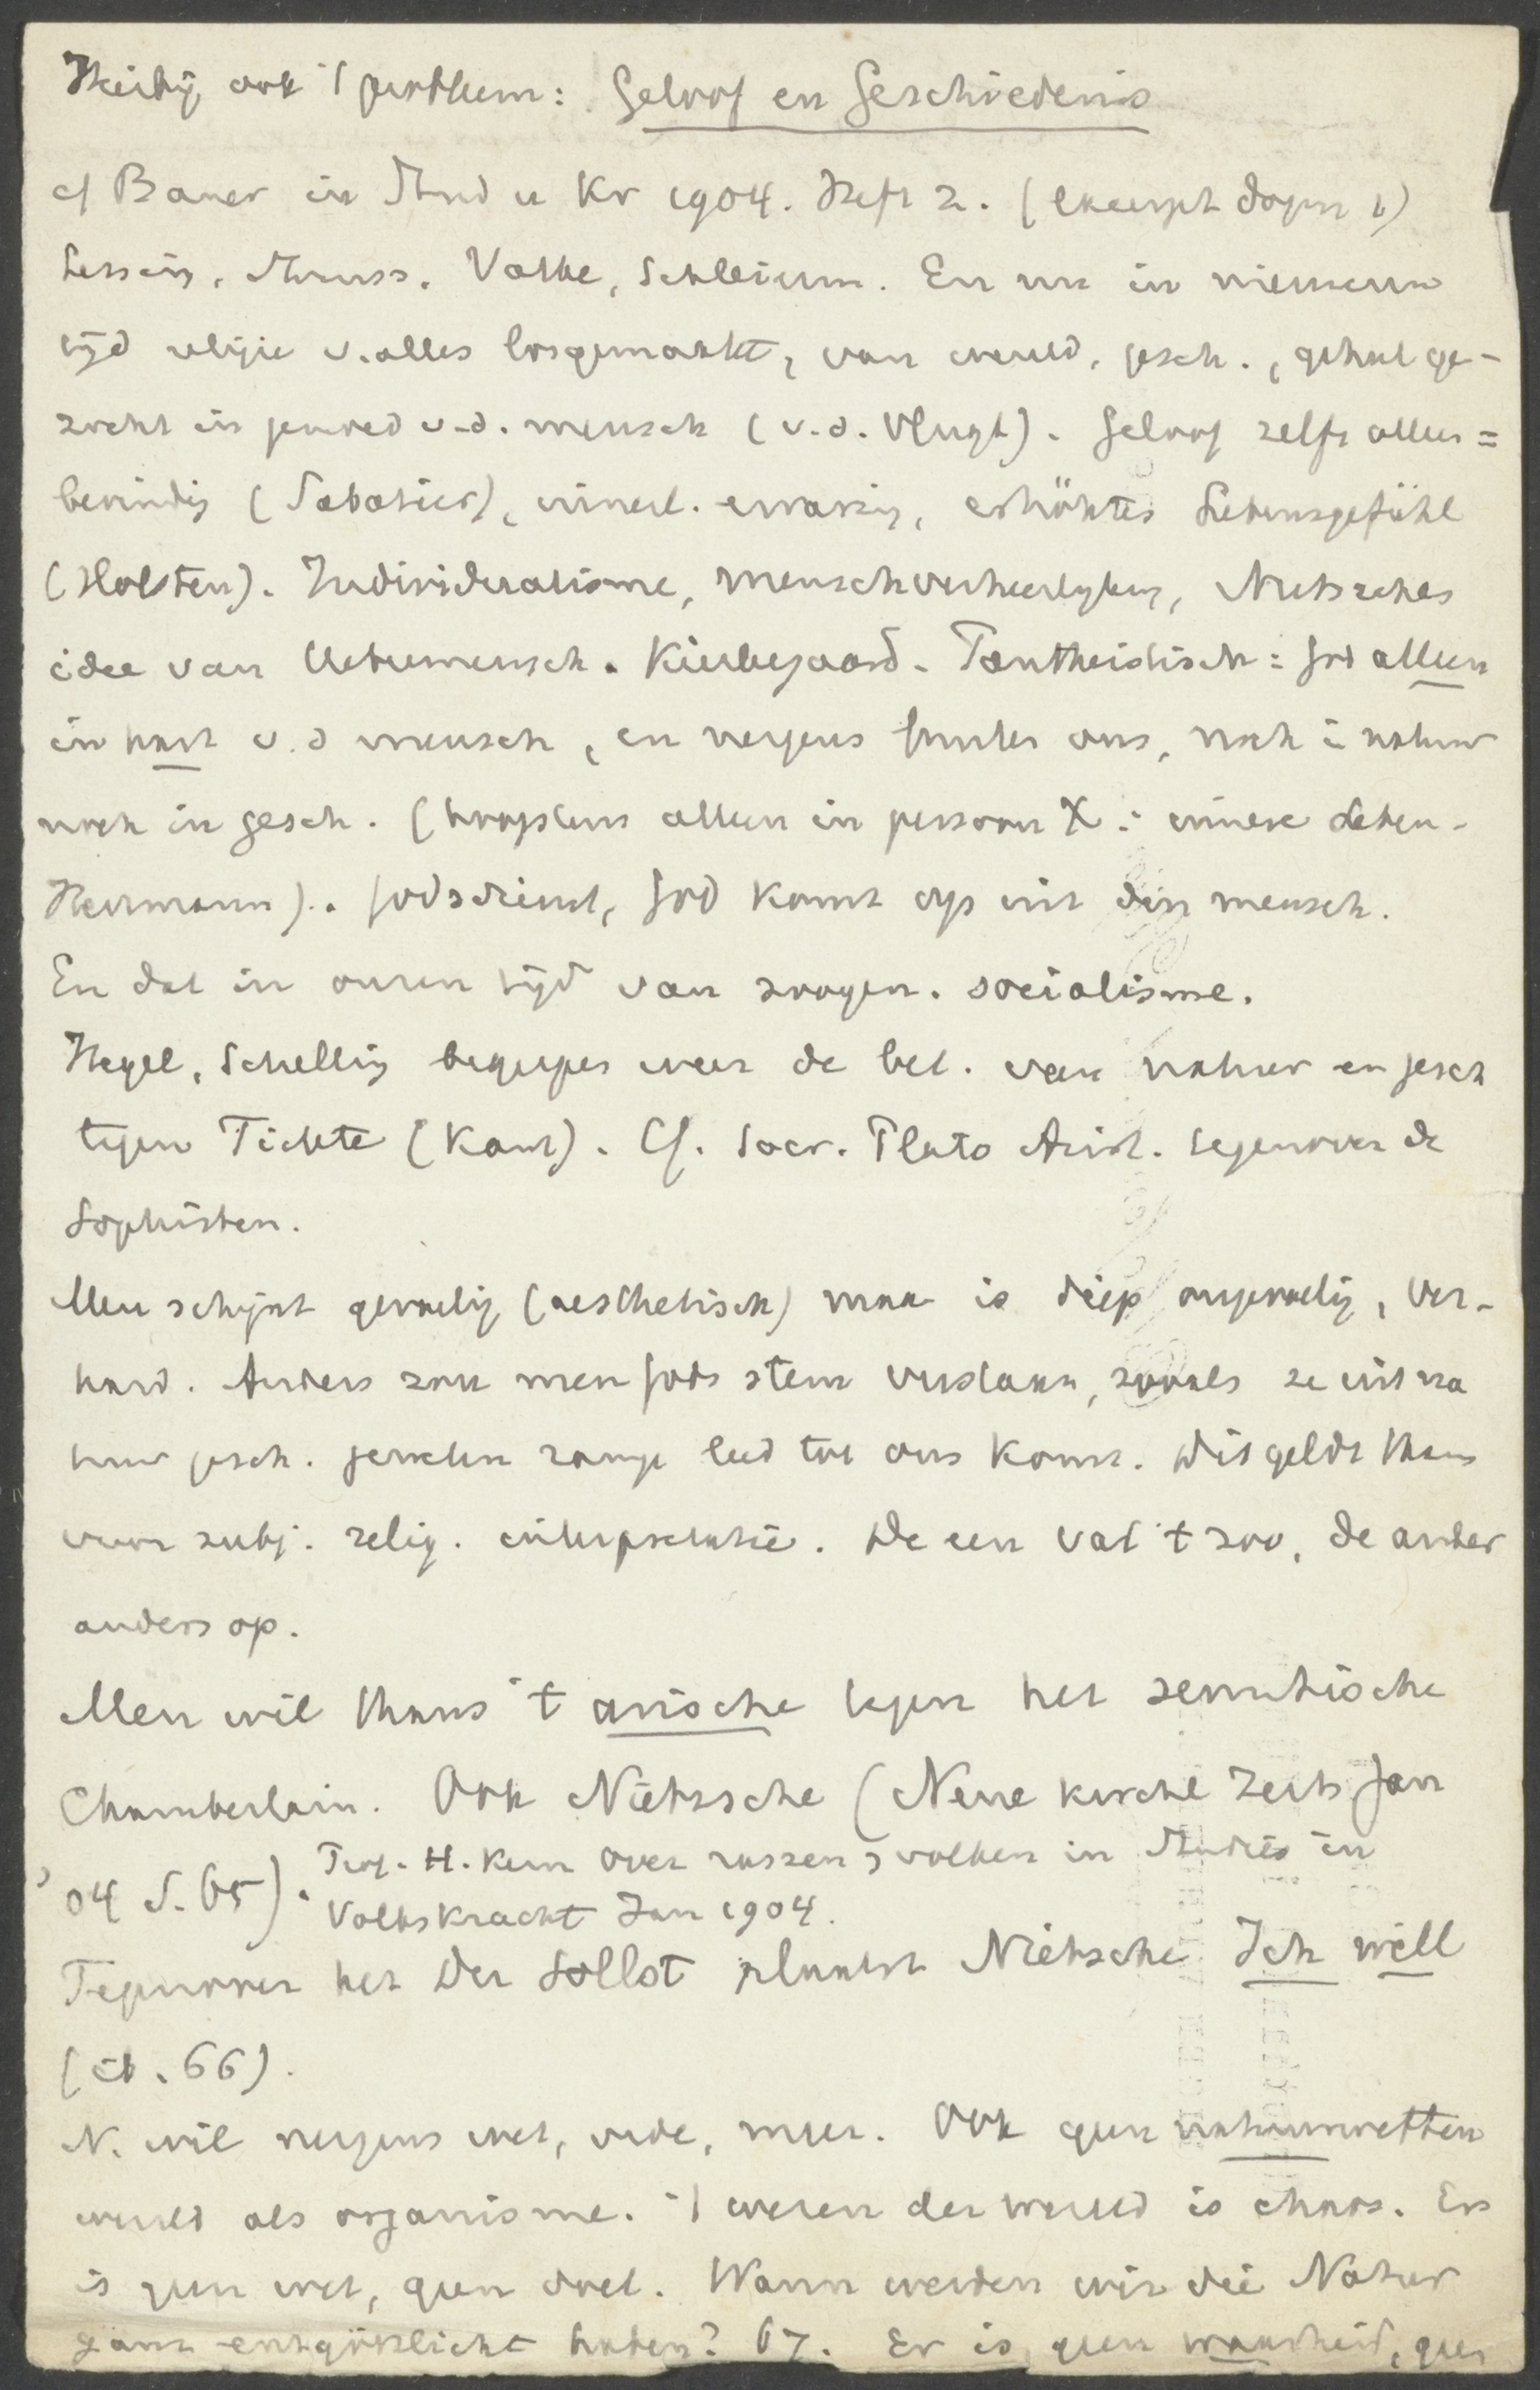 Hierbij ook 't probleem: Geloof en Geschiedenis
cf Bauer in Stud u Kr 1904. Heft 2. (excerpt dogm b)
Lessing, Strauss, Vatke, Schleierm. En nu in nieuweren
tijd religie v. alles losgemaakt, van wereld, gesch., geheel ge-
zocht in gemoed v. d. mensch (v. d. Vlugt). Geloof zelfs alleen =
bevinding (Sabatier), innerl. ervaring, erhöhtes Lebensgefühl
(Holsten). Individualisme, menschverheerlijking, Nietzsches
idee van Uebermensch. Kierkegaard. Pantheistisch: God alleen
in hart v. d mensch, en nergens buiten ons, noch i natuur
noch in gesch. (hoogstens alleen in persoon X: innere Leben-
Herrmann). Godsdienst, God komt op uit den mensch.
En dat in onzen tijd van zoogen. socialisme.
Hegel, Schelling begrepen weer de bet. van natuur en gesch
tegen Fichte (Kant). Cf. Socr. Plato Arist. tegenover de
Sophisten.
Men schijnt gevoelig (aesthetisch) maar is diep ongevoelig, ver-
hard. Anders zou men Gods stem verstaan, zooals ze uit na
tuur gesch. tot ons komt. Dit geldt thans
voor subj. relig. interpretatie. De een vat 't zoo, de ander
anders op.
Men wil thans 't arische tegen het semitische
Chamberlain. Ook Nietzsche (Neue kirchl Zeits Jan
'04 S. 65). Prof. H. Kern Over rassen & volken in Studies in
Volkskracht Jan 1904.
Tegenover het Der Sollst plaatst Nietzsche Ich will
(ib. 66).
N. wil nergens wet, orde, meer. Ook geen natuurwetten
wereld als organisme. 't wezen der wereld is chaos. Er
is geen wet, geen doel. Wann werden wir die Natur
ganz entgöttlicht haben? 67. Er is geen waarheid, geen